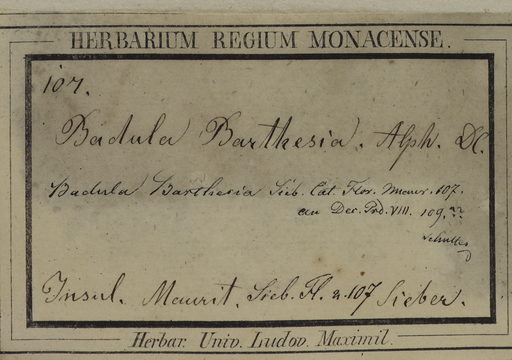 HERBARIUM REGIUM MONACENSE.
107.
Badula Barthesia. Alph. DC.
Badula Barthesia Sieb. Cat. Flor. Maur. 107.
an Dec. Prd. VIII. 109.??
Schultes
Insul. Maurit. Sieb. Fl. n. 107 Sieber.
Herbar. Univ. Ludov. Maximil.